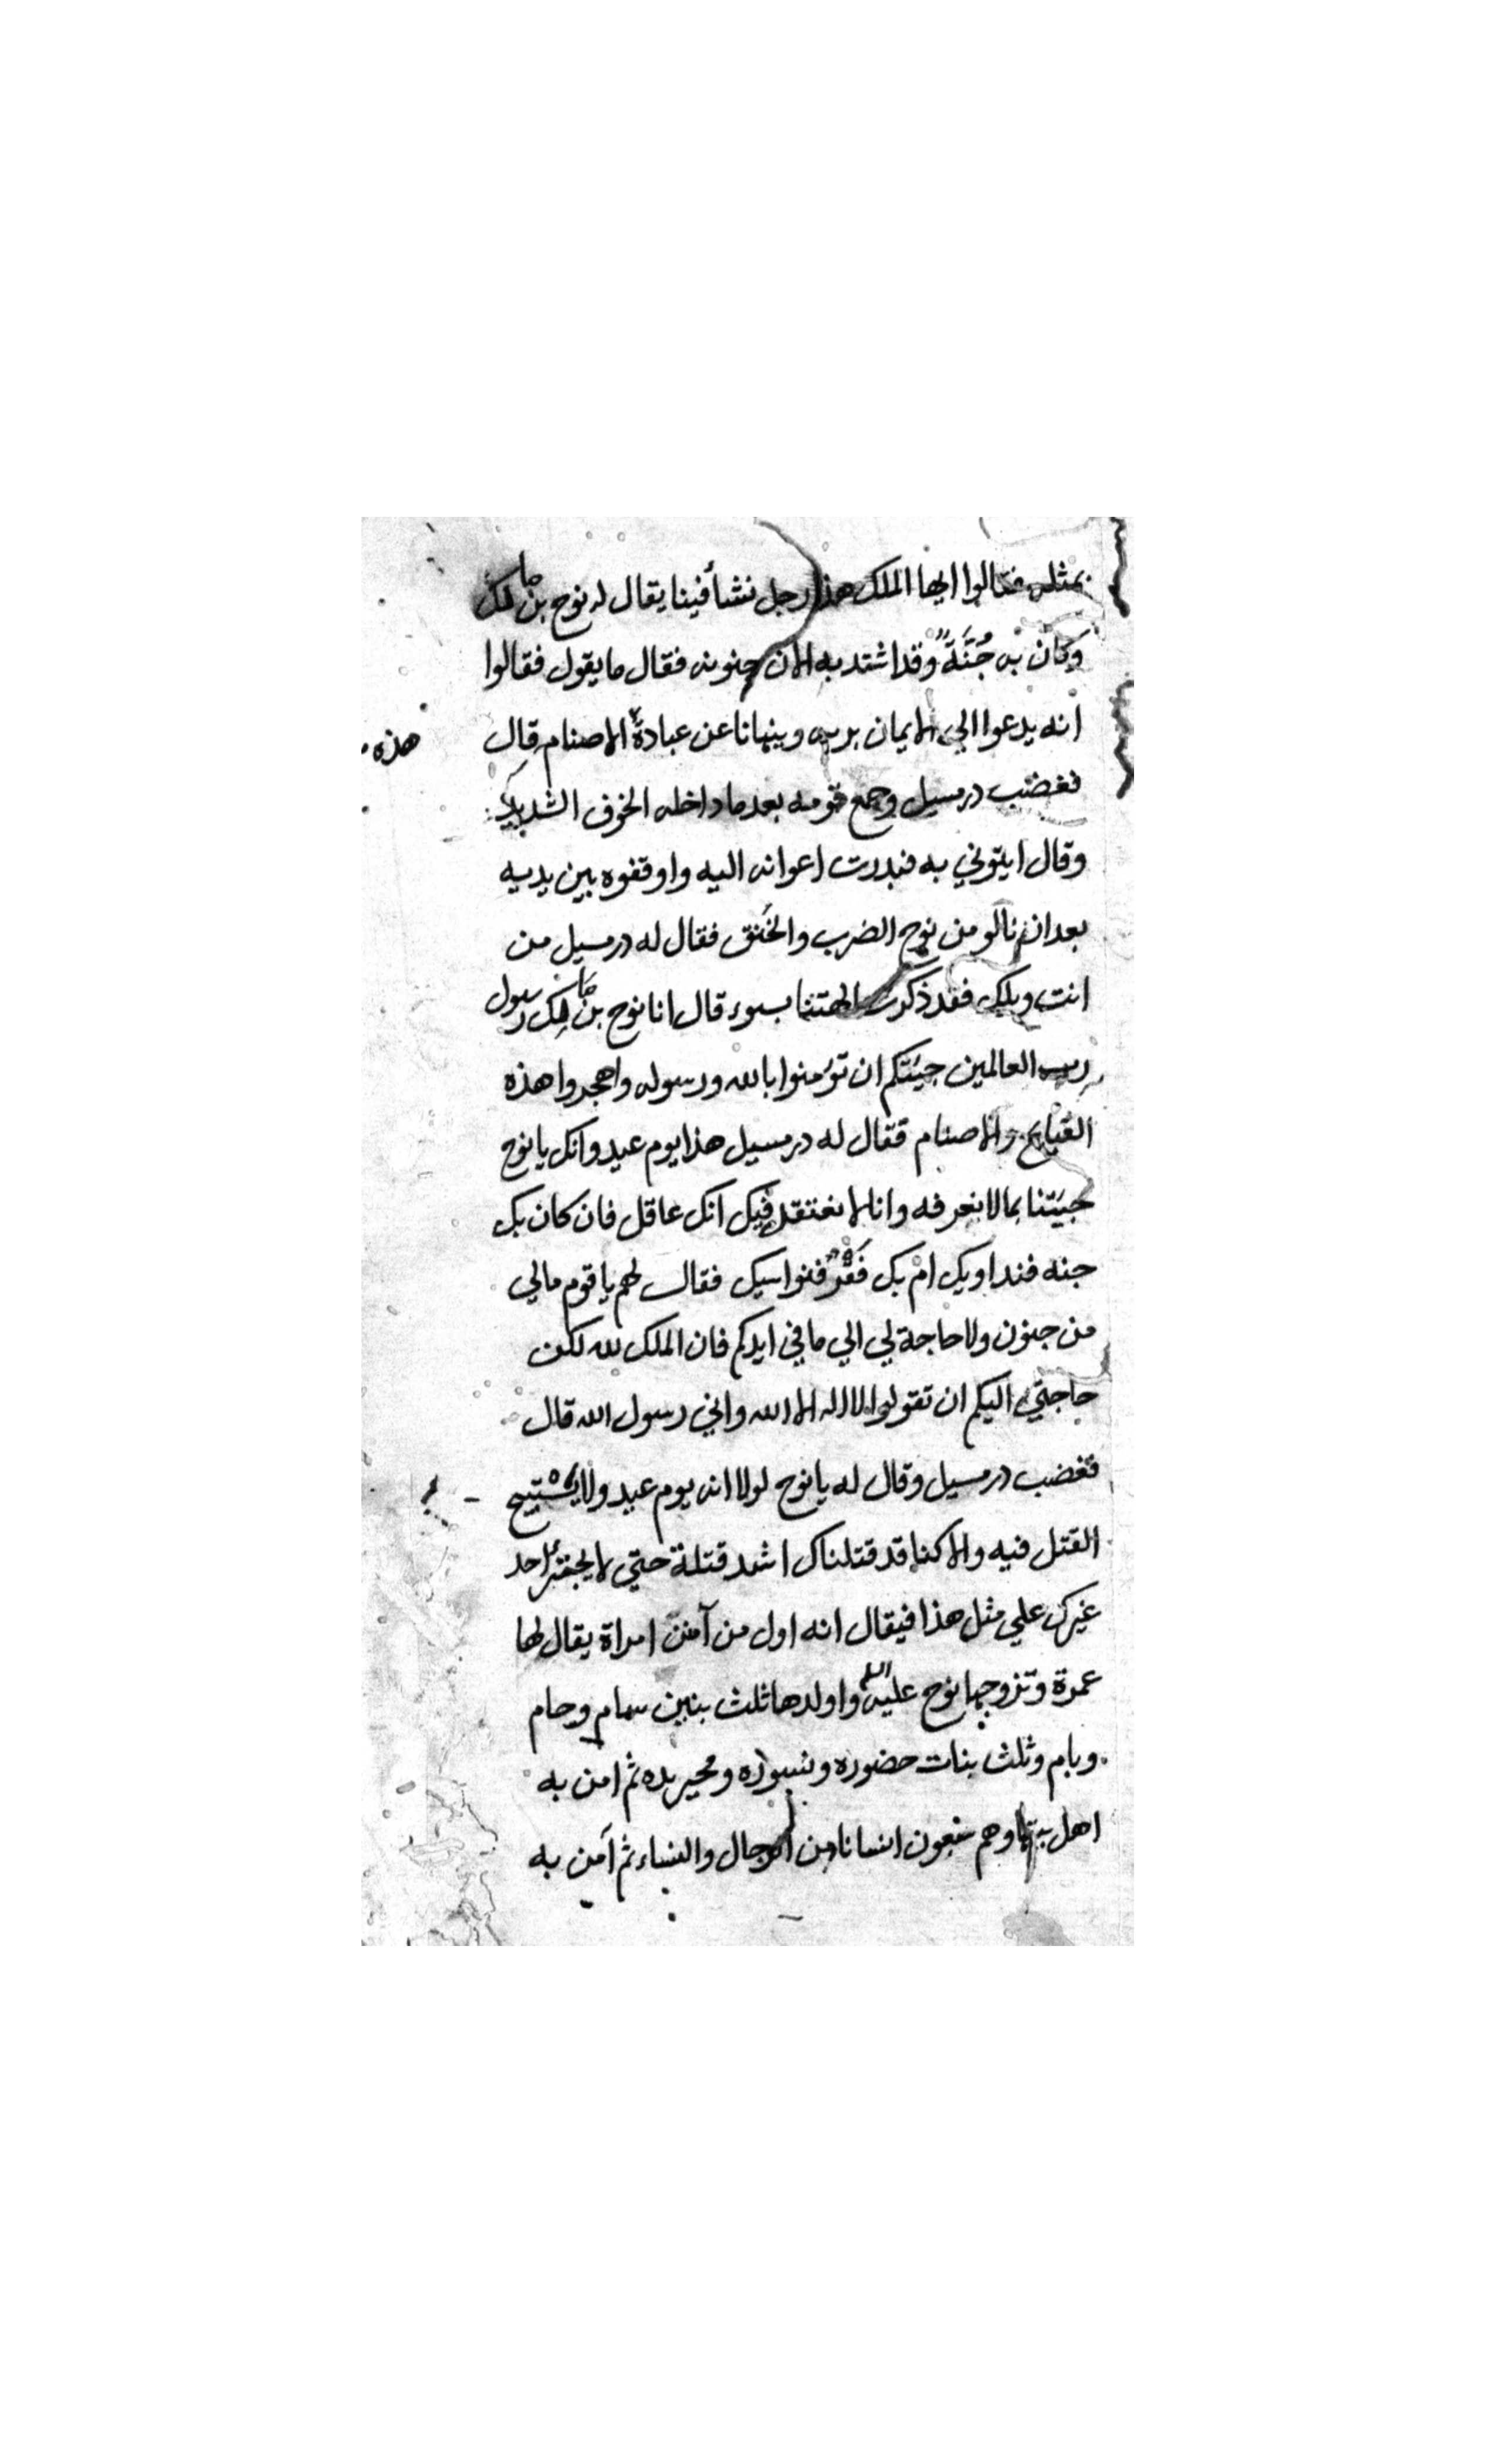 بمثله فقالوا ايها الملك هذا رجل نشأ فينا يقال له نوح بن لمك
وكان به جُنَّةً وقد اشتد به الان جنونه فقال ما يقول فقالوا
انه يدعوا الي الايمان بربه وينهانا عن عبادة الاصنام قال
هذه
فغضب درمسيل وجمع قومه بعد ما داخله الخوف الشديد
وقال ايتوني به فبدرت اعوانه اليه واوقفوه بين يديه
بعد ان نالو من نوح الضرب والخنق فقال له درمسيل من
انت ويلك فقد ذكرت الهتنا بسوء قال انا نوح بن لمك رسول
رب العالمين جيتكم ان تؤمنوا بالله ورسوله واهجروا هذه
القبايح والاصنام فقال له درمسيل هذا يوم عيد وانك يا نوح
جيتنا بما لا نعرفه وانا لا نعتقد فيك انك عاقل فان كان بك
جنه فنداويك ام بك فَقْرٌ فنواسيك فقال لهم يا قوم مالي
من جنون ولا حاجة لي الي ما في ايدكم فان الملك لله لكن
حاجتي اليكم ان تقولوا لا اله الا الله واني رسول الله قال
فغضب درمسيل وقال له يا نوح لولا انه يوم عيد ولا يستبيح
القتل فيه والا كنا قد قتلناك اشد قتلة حتي لا يجترُ احد
غيرك علي مثل هذا فيقال انه اول من آمن امراة يقال لها
عمرة وتزوجها نوح عليه السلم واولدها ثلث بنين سام وحام
ويام وثلث بنات حضوره ونسوره ومحيريده ثم امن به
اهل وهم سبعون انسانا من الرجال والنساء ثم آمن به